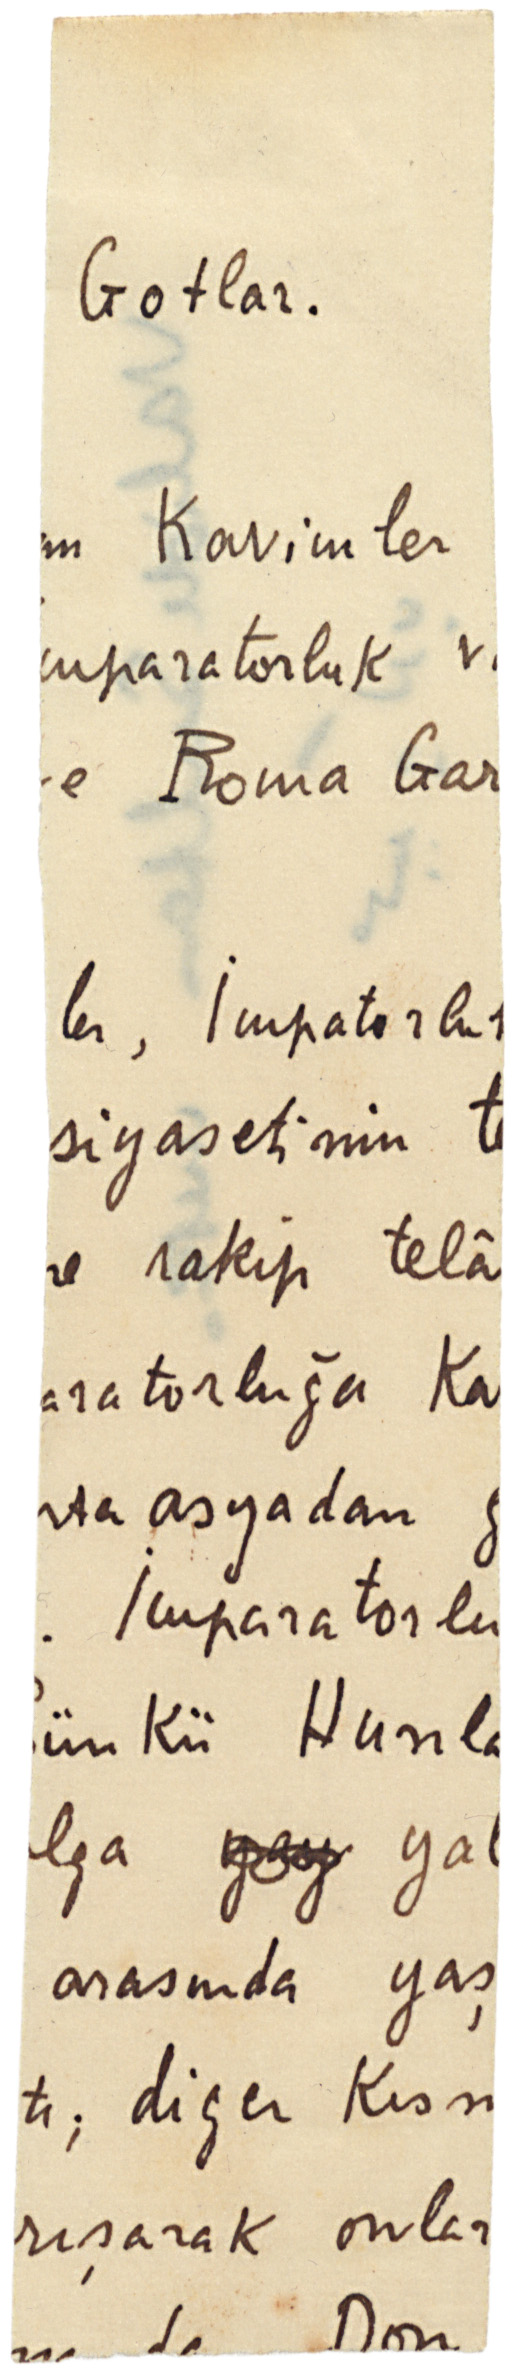 Gotlar.
Kavimler
mparatorluk
Roma Gar
ler, İmpatorlu
siyasetinin te
rakip telâ
aratorluğa Ka
rta asyadan g
. İmparatorlu
ünkü Hunla
lga yay yal
arasında yaş
tı; diger kısm
rışarak onlar
da Don